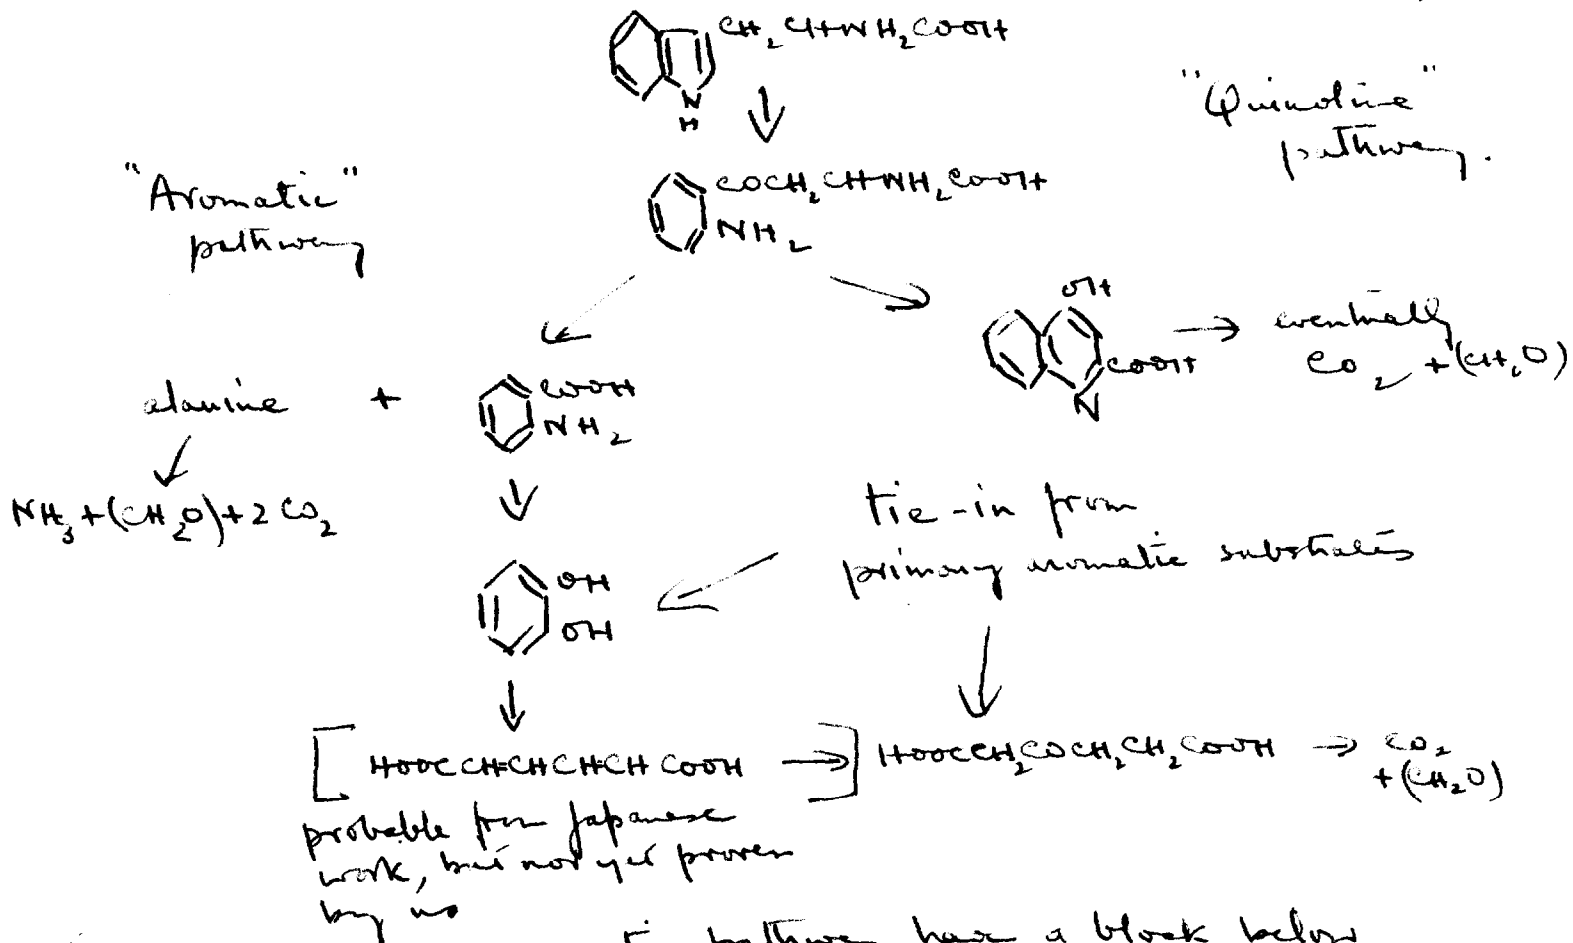 CH2CHNH2COOH
N
H
"Quinoline"
pathway.
"Aromatic"
pathway
COCH2CHNH2COOH
NH2
OH
COOH
N
→ eventually
CO2 + (CH2O)
alanine + COOH
NH2
NH3 + (CH2O) + 2 CO2
tie-in from
primary aromatic substrates
OH
OH
[HOOCCH=CHCH=CHCOOH →] HOOCCH2COCH2CH2COOH → CO2
+ (CH2O)
probable from Japanese
work, but not yet proven
by us
pathway have a block below